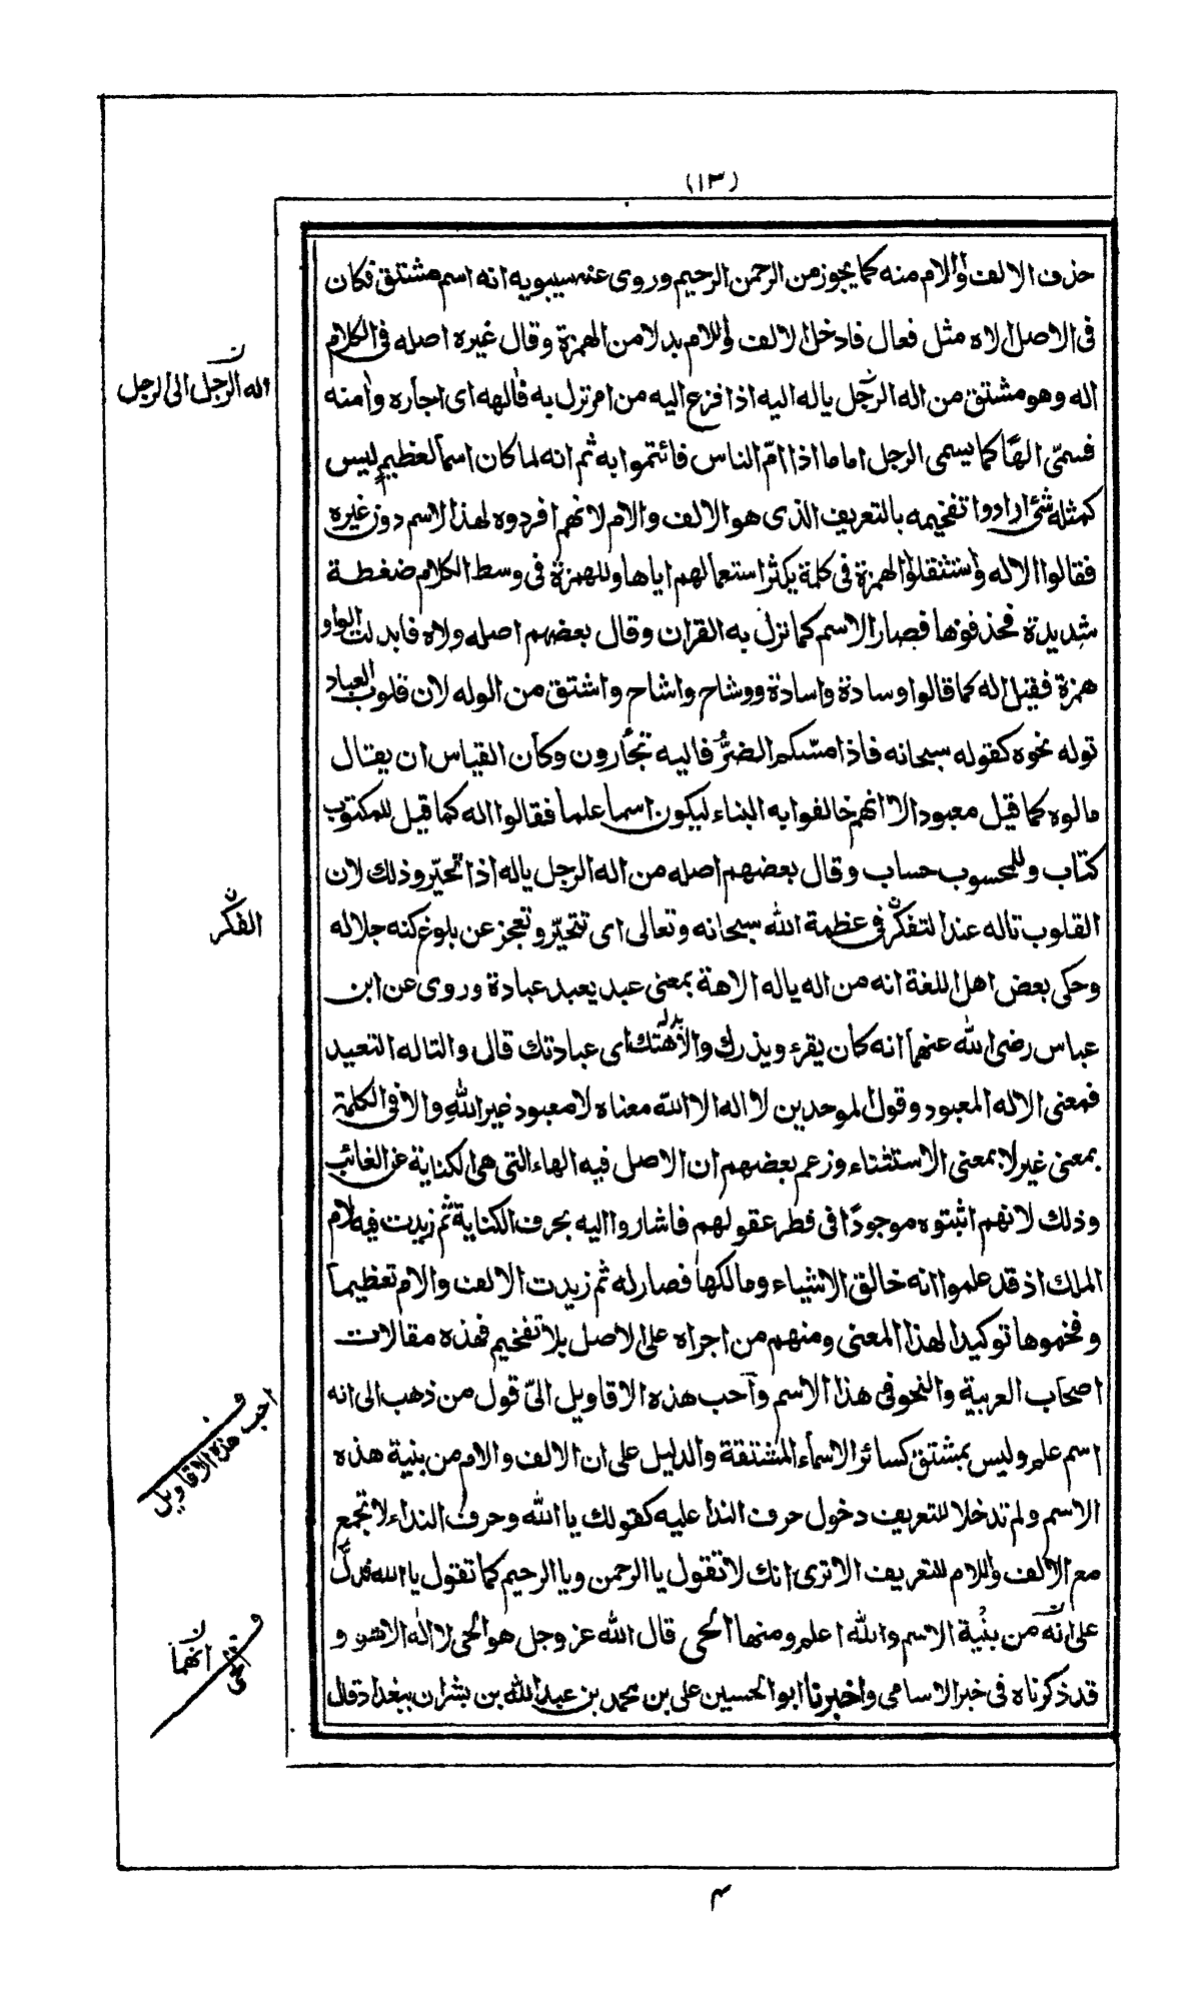 (١٣)
حذف الالف والام منه كما يجوز من الرحمن الرحيم وروى عن سيبويه انه اسم مشتق فكان
فى الاصل الاه مثل فعال فادخل الالف واللام بدلا من الهمزة وقال غيره اصله فى الكلام
اله وهو مشتق من اله الرجل ياله اليه اذا فزع اليه من امر نزل به فالهه اى اجاره وامنه
اله الرجل الى الرجل
فسمّى الهًا كما يسمى الرجل اماما اذا امّ الناس فائتموا به ثم انه لما كان اسما لعظيم ليس
كمثله شئ ارادوا تفخيمه بالتعريف الذى هو الالف والام لانهم افردوه لهذا الاسم دون غيره
فقالوا الاله واستثقلوا الهمزة فى كلمة يكثر استعمالهم اياها وللهمزة فى وسط الكلام ضغطة
شديدة فحذفوها فصار الاسم كما نزل به القران وقال بعضهم اصله ولاه فابدلت الواو
همزة فقيل اله كما قالوا وسادة واسادة ووشاح واشاح واشتق من الوله لان قلوب العباد
توله نحوه كقوله سبحانه فاذا مسّكم الضرُّ فاليه تجأرون وكان القياس ان يقال
مالوه كما قيل معبود الا انهم خالفوا به البناء ليكون اسما علما فقالوا اله كما قيل للمكتوب
كتاب وللمحسوب حساب وقال بعضهم اصله من اله الرجل ياله اذا تحيّر وذلك لان
القلوب تاله عند التفكّر فى عظمة الله سبحانه وتعالى اى تتحيّر وتعجز عن بلوغ كنه جلاله
الفكر
وحكى بعض اهل اللغة انه من اله ياله الاهة بمعنى عبد يعبد عبادة وروى عن ابن
عباس رضى الله عنهما انه كان يقرء ويذرك والاهتك اى عبادتك قال والتاله التعبد
فمعنى الاله المعبود وقول الموحدين لا اله الا الله معناه لا معبود غير الله والا فى الكلمة
بمعنى غير لا بمعنى الاستثناء وزعم بعضهم ان الاصل فيه الهاء التى هى الكناية عن الغائب
وذلك لانهم اثبتوه موجودًا فى فطر عقولهم فاشاروا اليه بحرف الكناية ثم زيدت فيه لام
الملك اذ قد علموا انه خالق الاشياء ومالكها فصار له ثم زيدت الالف والام تعظيما
وفخموها توكيدا لهذا المعنى ومنهم من اجراه على الاصل بلا تفخيم فهذه مقالات
اصحاب العربية والنحو فى هذا الاسم وأحب هذه الاقاويل الىّ قول من ذهب الى انه
احب هذه الاقاويل
اسم علم وليس بمشتق كسائر الاسماء المشتقة والدليل على ان الالف والام من بنية هذه
الاسم ولم تدخلا للتعريف دخول حرف الندا عليه كقولك يا الله وحرف النداء لا تجمع
مع الالف واللام للتعريف الا ترى انك لا تقول يا الرحمن ويا الرحيم كما تقول يا الله فدلّ
على انه من بنية الاسم والله اعلم ومنها الحى قال الله عز وجل هو الحى لا اله الا هو و
انهما
قد ذكرناه فى خبر الاسامى واخبرنا ابو الحسين على بن محمد بن عبد الله بن بشران ببغداد قال
م